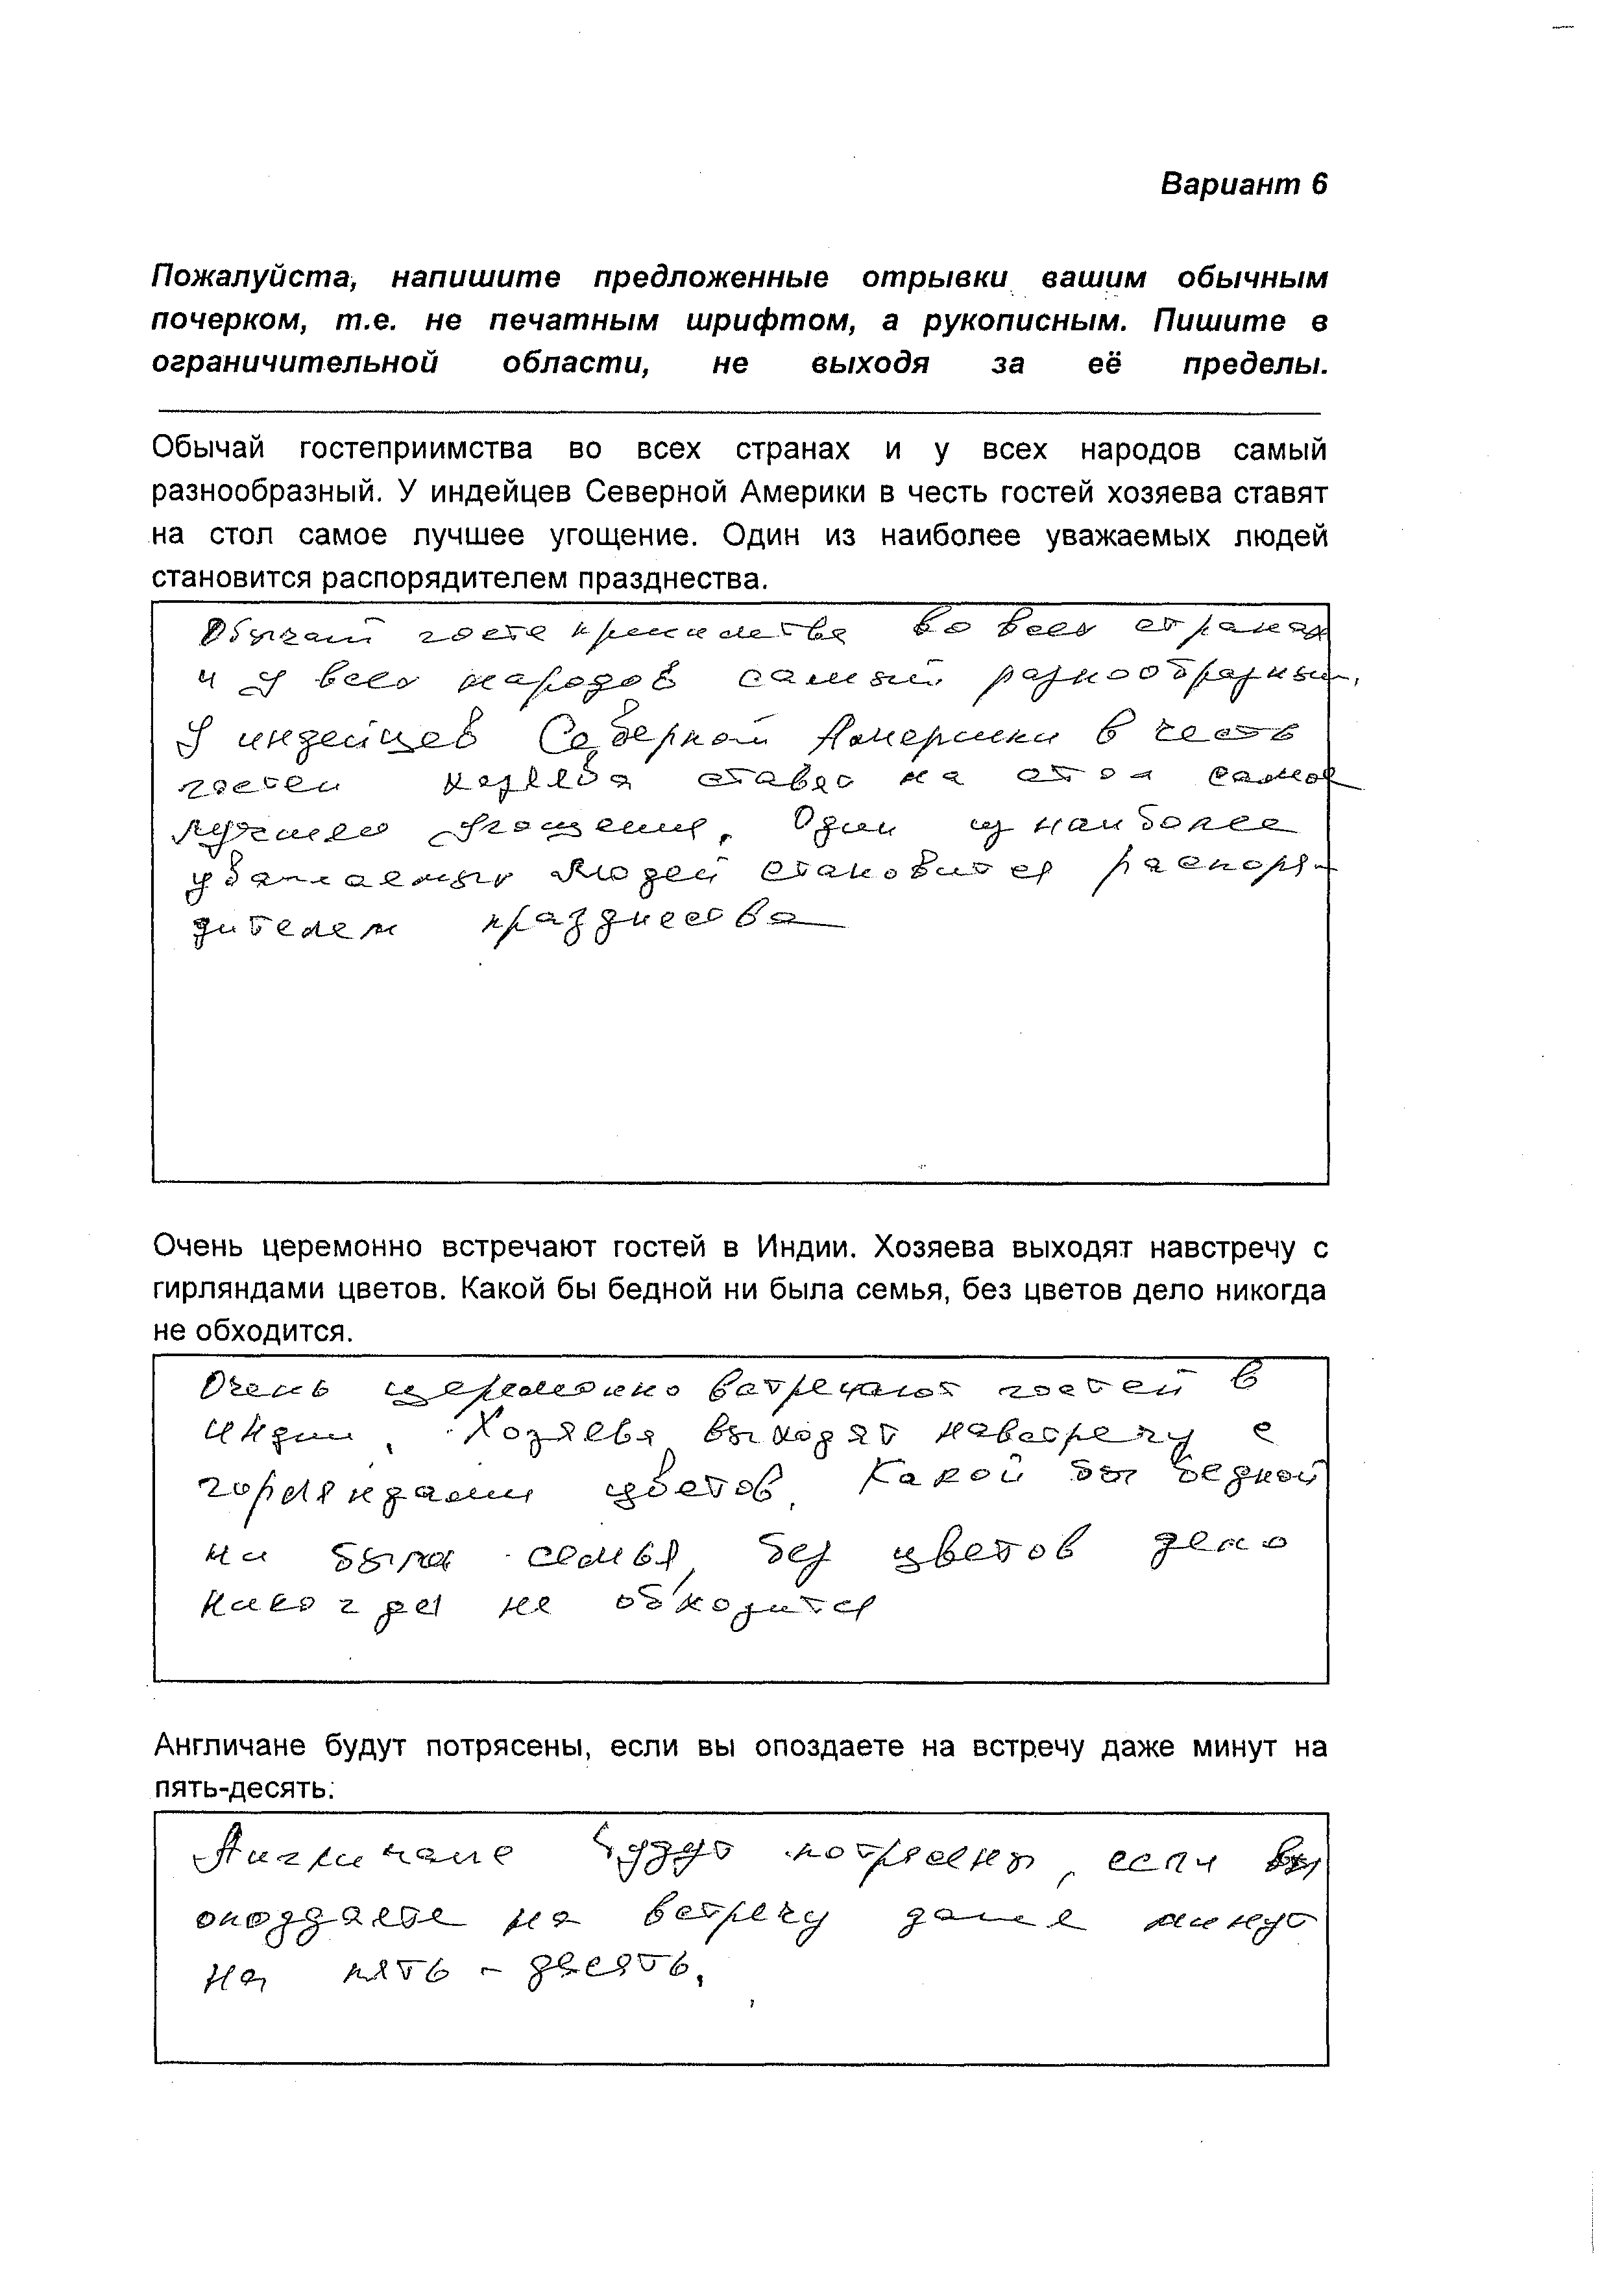 Вариант 6
Пожалуйста, напишите предложенные отрывки вашим обычным
почерком, т.е. не печатным шрифтом, а рукописным. Пишите в
ограничительной области, не выходя за её пределы.
Обычай гостеприимства во всех странах и у всех народов самый
разнообразный. У индейцев Северной Америки в честь гостей хозяева ставят
на стол самое лучшее угощение. Один из наиболее уважаемых людей
становится распорядителем празднества.
Обычай гостеприимства во всех странах
и у всех народов самый разнообразный.
У индейцев Северной Америки в честь
гостей хозяева ставят на стол самое
лучшее угощение. Один из наиболее
уважаемых людей становится распоря-
дителем празднества
Очень церемонно встречают гостей в Индии. Хозяева выходят навстречу с
гирляндами цветов. Какой бы бедной ни была семья, без цветов дело никогда
не обходится.
Очень церемонно встречают гостей в
Индии. Хозяева выходят навстречу с
горляндами цветов. Какой бы бедной
ни была семья, без цветов дело
никогда не обходится
Англичане будут потрясены, если вы опоздаете на встречу даже минут на
пять-десять.
Англичане будут потрясены, если вы
опоздаете на встречу даже минут
на пять - десять.